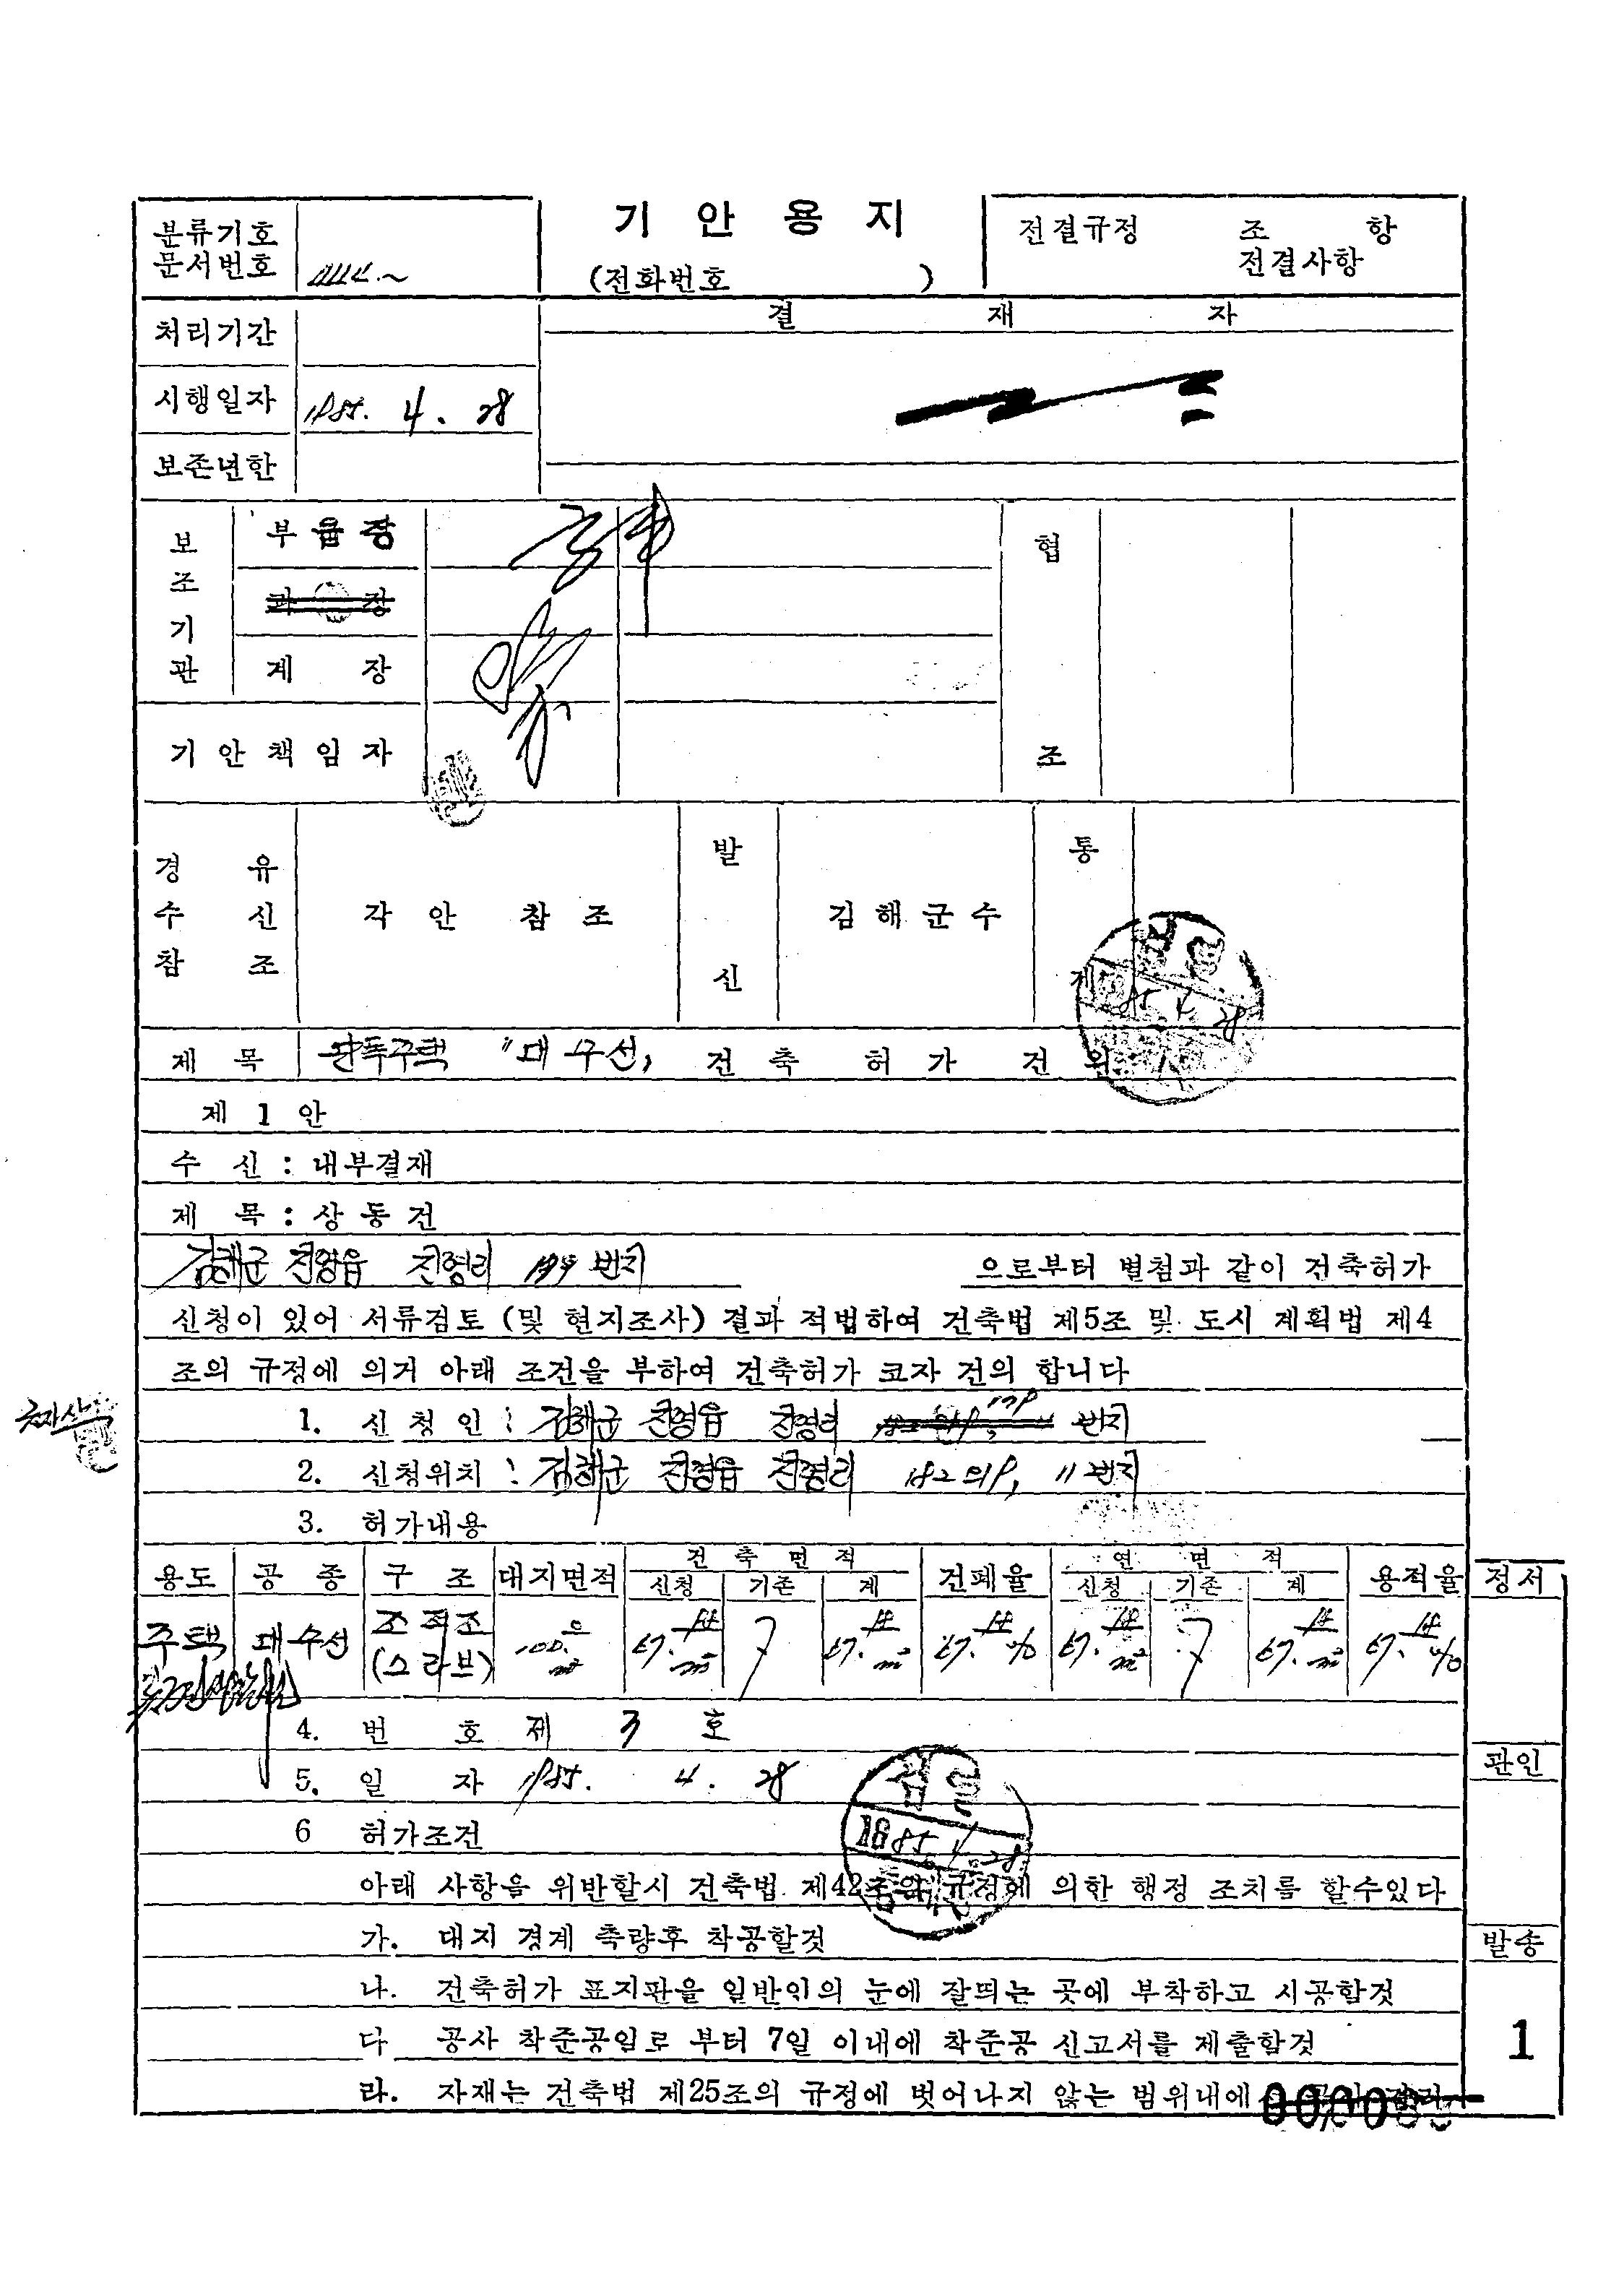 기 안 용 지
분류기호
문서번호
(전화번호 )
전결규정 조 항
전결사항
처리기간
결 재 자
시행일자 1985. 4. 28
보존년한
보조기관
부읍장
과 장
계 장
협조
기안책임자
경 유
수 신
참 조
각 안 참 조
발신
김해군수
통제
85. 4. 28
제 목 단독주택 "대수선" 건 축 허 가 건 의
제 1 안
수 신 : 내부결재
제 목 : 상 동 건
김해군 진영읍 진영리 번지 으로부터 별첨과 같이 건축허가
신청이 있어 서류검토 (및 현지조사) 결과 적법하여 건축법 제5조 및 도시 계획법 제4
조의 규정에 의거 아래 조건을 부하여 건축허가 코자 건의 합니다
1. 신 청 인 : 김해군 진영읍 진영리 번지
2. 신청위치 : 김해군 진영읍 진영리 182의9, 11번지
3. 허가내용
용도 공 종 구 조 대지면적 건 축 면 적 건폐율 연 면 적 용적율
신청 기존 계 신청 기존 계
주택 대수선 조적조 100. ㎡ 67.14 ㎡ 67.14 ㎡ 67.14 % 67.14 ㎡ 67.14 ㎡ 67.14 %
(스라브)
4. 번 호 제 3 호
5. 일 자 1985. 4. 28
6 허가조건
검열
1985. 4. 28
아래 사항을 위반할시 건축법 제42조의 규정에 의한 행정 조치를 할수있다
가. 대지 경계 측량후 착공할것
나. 건축허가 표지판을 일반인의 눈에 잘띄는 곳에 부착하고 시공할것
다 공사 착준공일로 부터 7일 이내에 착준공 신고서를 제출할것
라. 자재는 건축법 제25조의 규정에 벗어나지 않는 범위내에
정서
관인
발송
1